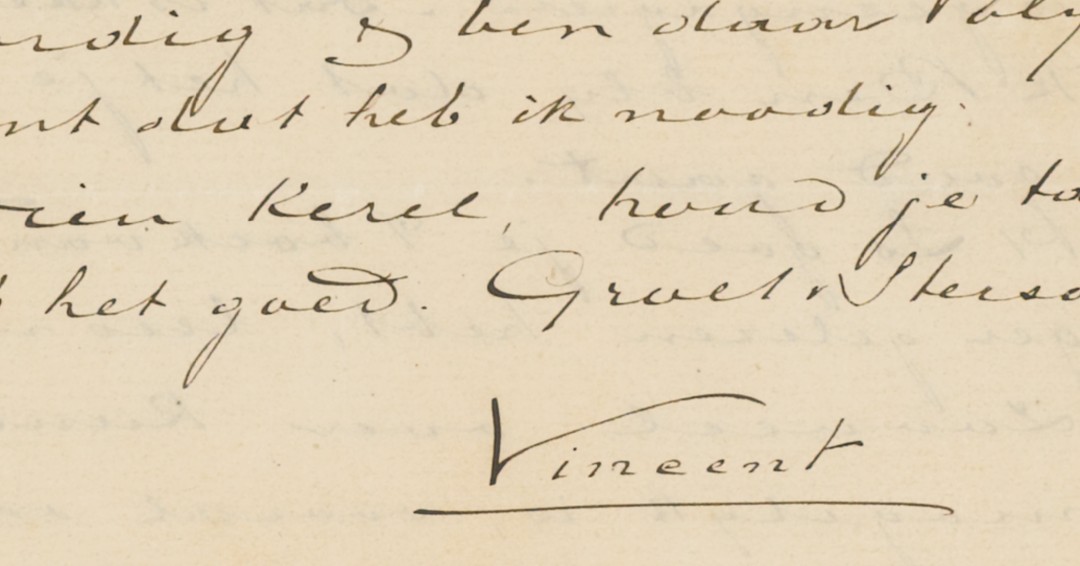 rdig & ben daar bly
nt dat heb ik noodig.
ien Kerel, houd je ta
het goed. Groet
Vincent